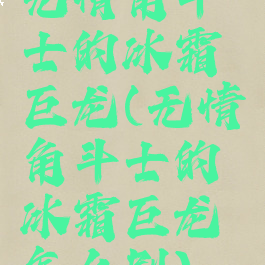 无情角斗
士的冰霜
巨龙(无情
角斗士的
冰霜巨龙
怎么刷)